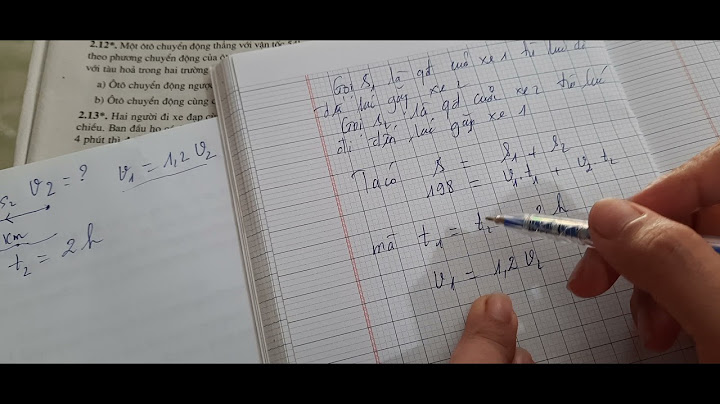 2.12*. Một ôtô chuyển động thẳng với vận tốc
theo phương chuyển động của
với tàu hoả trong hai trường
a) Ôtô chuyển động ngược
b) Ôtô chuyển động cùng
2.13*. Hai người đi xe đạp
chiều. Ban đầu họ
4 phút thì
S₂ V₂ = ? V₁ = 1,2 V₂
km
t₂ = 2 h
Gọi S₁ là qđ xe 1 từ lúc
lúc gặp xe 2
Gọi S₂ là qđ xe 2 từ lúc
đi đến lúc gặp xe 1
Ta có S = S₁ + S₂
198 = V₁.t₁ + V₂.t₂
mà t₁ = t₂ 2 h
V₁ = 1,2 V₂